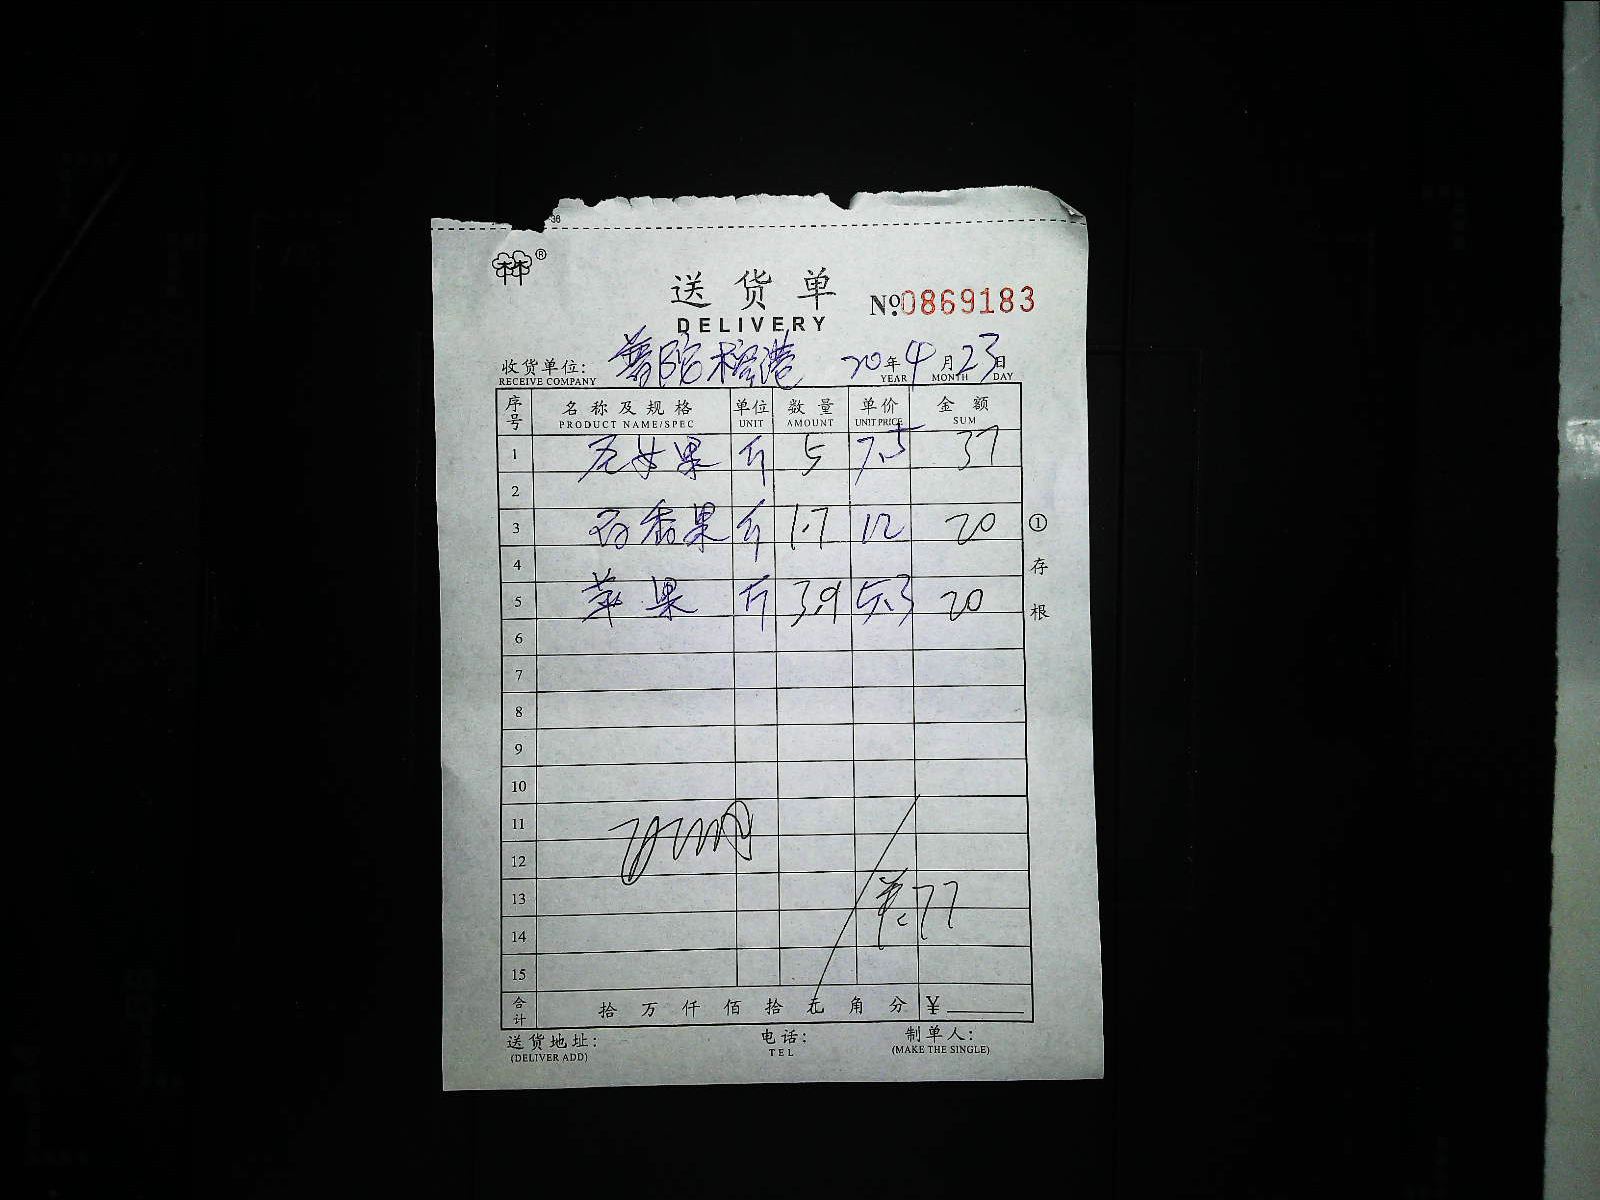 林®
送货单 №:0869183
DELIVERY
收货单位: 普陀 20年4月23日
RECEIVE COMPANY YEAR MONTH DAY
序号 名称及规格 单位 数量 单价 金额
PRODUCT NAME/SPEC UNIT AMOUNT UNIT PRICE SUM
1 果 斤 5 7.5 37
2
3 百香果 斤 1.7 12 20
4
5 苹果 斤 3.9 5.3 20
6
7
8
9
10
11
12
13 77
14
15
合计 拾 万 仟 佰 拾 元 角 分 ¥
送货地址: 电话: 制单人:
(DELIVER ADD) TEL (MAKE THE SINGLE)
①存根